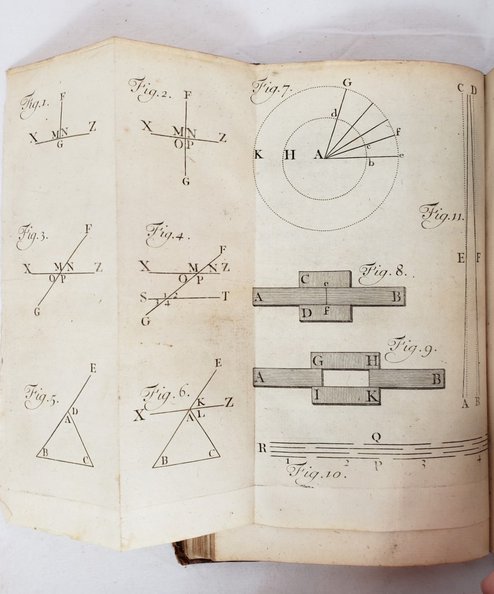 Fig.1.
F
X M N Z
G
Fig.2.
F
X M N Z
O P
G
Fig.3.
F
X M N Z
O P
G
Fig.4.
F
X M N Z
O P
S 1 2 T
3 4
G
Fig.5.
E
D
A
B C
Fig.6.
E
K
X Z
A L
B C
Fig.7.
G
d
f
c
K H A e
b
Fig.8.
C
e
A B
D f
Fig.9.
G H
A B
I K
Q
R
1 2 P 3 4
Fig.10.
C D
Fig.11.
E F
A B